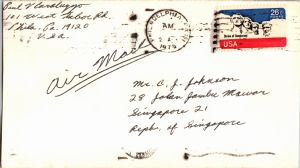 Paul
101 West Tabor Rd.
Phila. Pa. 19120
U.S.A.
PHILADELPHIA
AM
1975
26c
USA
Air Mail
Mr. C. J. Johnson
28 Jalan Jambu Mawar
Singapore 21
Repb. of Singapore